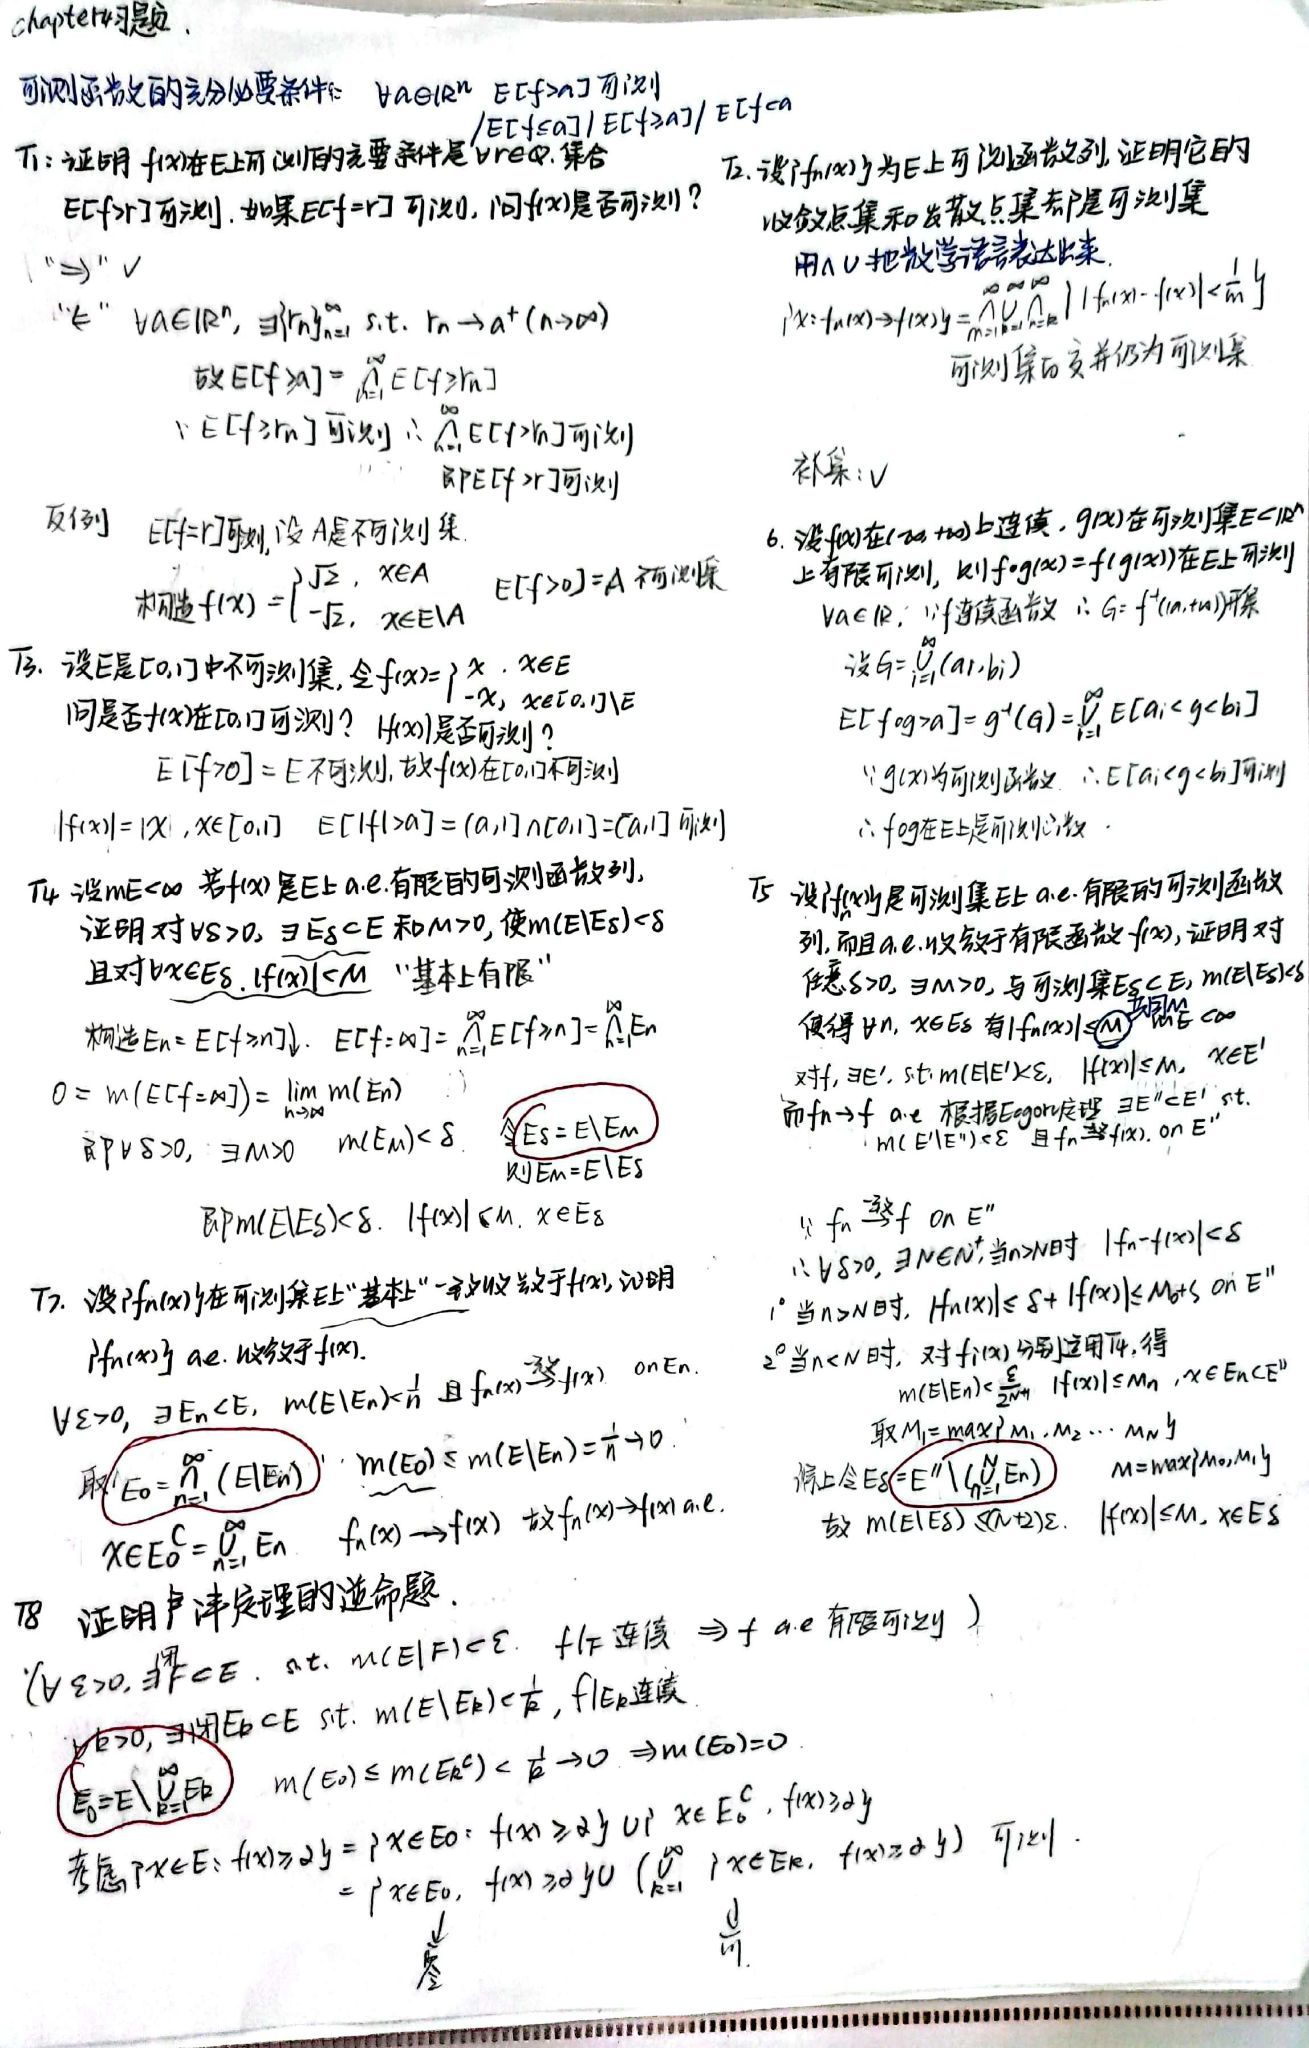 chapter4习题.
可测函数的充分必要条件: ∀a∈ℝⁿ E[f>a] 可测
/E[f≤a]/E[f≥a]/E[f<a
T1: 证明 f(x)在E上可测的充要条件是∀r∈Q. 集合
E[f>r]可测. 如果E[f=r] 可测, 问f(x)是否可测?
"⇒" ✓
"⇐" ∀a∈ℝⁿ, ∃{rn}∞n=1 s.t. rn→a⁺(n→∞)
故E[f>a]=∞∩n=1 E[f≥rn]
∵E[f≥rn]可测 ∴∞∩n=1 E[f>rn]可测
即E[f>r]可测
反例 E[f=r]可测, 设A是不可测集.
构造f(x)={√2, x∈A
-√2, x∈E\A
E[f>0]=A 不可测集
T3. 设E是[0,1]中不可测集, 令f(x)={x, x∈E
-x, x∈[0,1]\E
问是否f(x)在[0,1]可测? |f(x)|是否可测?
E[f>0]=E不可测, 故f(x)在[0,1]不可测
|f(x)|=|x|, x∈[0,1] E[|f|>a]=(a,1]∩[0,1]=(a,1] 可测
T4 设mE<∞ 若f(x)是E上a.e.有限的可测函数列,
证明对∀δ>0, ∃Eδ⊂E和M>0, 使m(E\Eδ)<δ
且对∀x∈Eδ, |f(x)|<M "基本上有限"
构造En=E[f≥n]↓. E[f=∞]=∞∩n=1 E[f≥n]=∞∩n=1 En
0=m(E[f=∞])=lim n→∞ m(En)
即∀δ>0, ∃M>0 m(EM)<δ. 令Eδ=E\EM
则EM=E\Eδ
即m(E\Eδ)<δ. |f(x)|≤M. x∈Eδ
T7. 设{fn(x)}在可测集E上"基本上"一致收敛于f(x), 证明
{fn(x)} a.e. 收敛于f(x).
∀ε>0, ∃En⊂E, m(E\En)<1/n 且fn(x)⇉f(x) on En.
取E0=∞∩n=1(E\En) m(E0)≤m(E\En)=1/n→0.
x∈E0ᶜ=∞∪n=1 En fn(x)→f(x) 故fn(x)→f(x) a.e.
T2. 设{fn(x)}为E上可测函数列, 证明它的
收敛点集和发散点集都是可测集
用∩∪把数学语言表达出来.
{x:fn(x)→f(x)}=∞∩m=1 ∞∪k=1 ∞∩n=k {|fn(x)-f(x)|<1/m}
可测集的交并仍为可测集
补集: ✓
6. 设f(x)在(-∞,+∞)上连续, g(x)在可测集E⊂ℝⁿ
上有限可测, 则f∘g(x)=f(g(x))在E上可测
∀a∈ℝ, ∵f连续函数 ∴G=f⁻¹((a,+∞))开集
设G=∞∪i=1(ai,bi)
E[f∘g>a]=g⁻¹(G)=∞∪i=1 E[ai<g<bi]
∵g(x)为可测函数 ∴E[ai<g<bi]可测
∴f∘g在E上是可测函数.
T5 设{fn(x)}是可测集E上a.e.有限的可测函数
列, 而且a.e.收敛于有限函数f(x), 证明对
任意δ>0, ∃M>0, 与可测集Eδ⊂E, m(E\Eδ)<δ
使得∀n, x∈Eδ 有|fn(x)|≤M 共同M mE<∞
对f, ∃E', s.t. m(E\E')<ε, |f(x)|≤M, x∈E'
而fn→f a.e 根据Egoru定理 ∃E''⊂E' s.t.
m(E'\E'')<ε 且fn⇉f(x). on E''
∵fn⇉f on E''
∴∀δ>0, ∃N∈N⁺, 当n>N时 |fn-f(x)|<δ
1° 当n>N时, |fn(x)|≤δ+|f(x)|≤M0+δ on E''
2° 当n<N时, 对fi(x)分别运用T4, 得
m(E\En)<ε/2ᴺ⁺¹ |f(x)|≤Mn, x∈En⊂E''
取M1=max{M1,M2…MN}
综上令Eδ=E''\(N∪n=1 En) M=max{M0,M1}
故m(E\Eδ)≤(N+2)ε. |f(x)|≤M, x∈Eδ
T8 证明卢津定理的逆命题.
(∀ε>0, ∃闭F⊂E. s.t. m(E\F)<ε. f|F连续 ⇒f a.e 有限可测)
∀k>0, ∃闭Ek⊂E s.t. m(E\Ek)<1/k, f|Ek连续.
E0=E\∞∪k=1 Ek m(E0)≤m(Ekᶜ)<1/k→0 ⇒m(E0)=0
考虑{x∈E: f(x)≥α}={x∈E0: f(x)≥α}∪{x∈E0ᶜ, f(x)≥α}
={x∈E0, f(x)≥α}∪(∞∪k=1 {x∈Ek, f(x)≥α}) 可测.
↓
零
↓
闭.